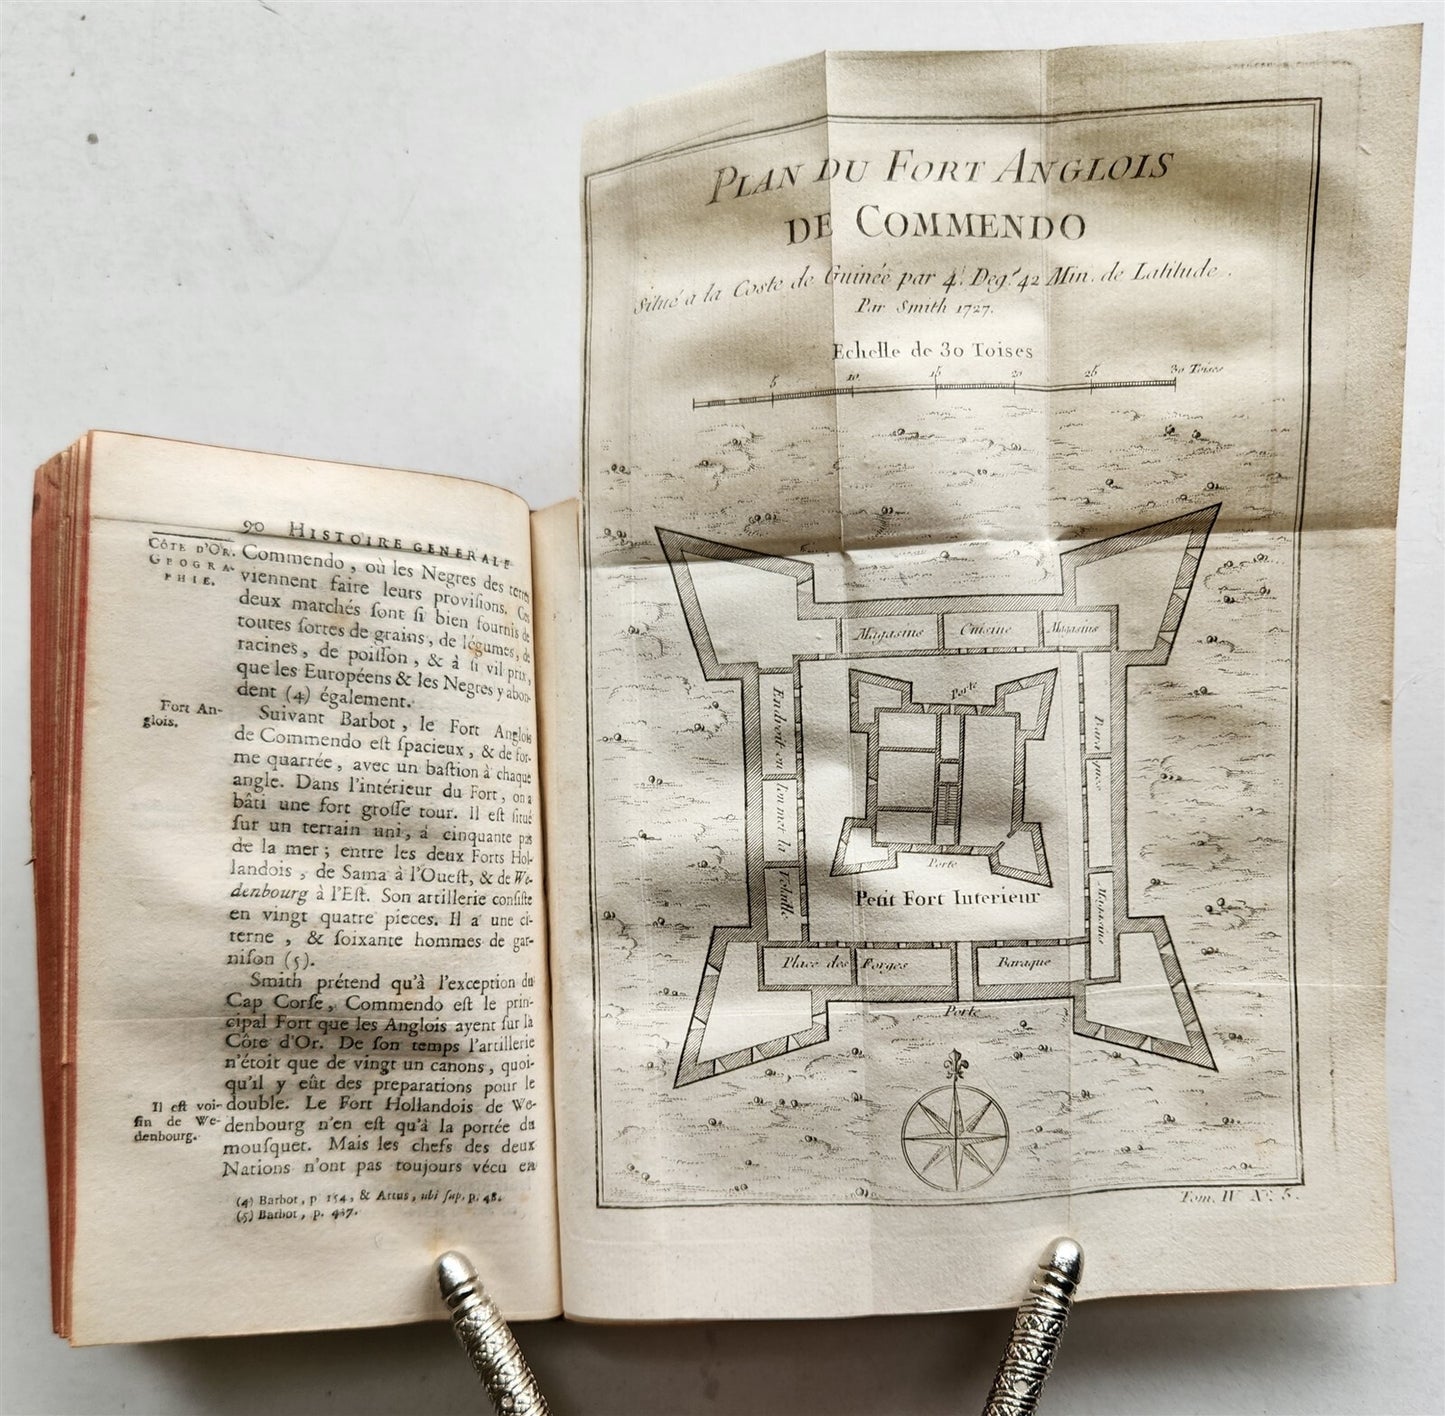 90 HISTOIRE GENERALE
CÔTE D'OR.
GEOGRA-
PHIE.
Commendo, où les Negres des terres
viennent faire leurs provisions. Ces
deux marchés sont si bien fournis de
toutes sortes de grains, de légumes, de
racines, de poisson, & à si vil prix,
que les Européens & les Negres y abon-
dent (4) également.
Fort An-
glois.
Suivant Barbot, le Fort Anglois
de Commendo est spacieux, & de for-
me quarrée, avec un bastion à chaque
angle. Dans l'intérieur du Fort, on a
bâti une fort grosse tour. Il est situé
sur un terrain uni, à cinquante pas
de la mer; entre les deux Forts Hol-
landois, de Sama à l'Ouest, & de We-
denbourg à l'Est. Son artillerie consiste
en vingt quatre pieces. Il a une ci-
terne, & soixante hommes de gar-
nison (5).
Smith prétend qu'à l'exception du
Cap Corse, Commendo est le prin-
cipal Fort que les Anglois ayent sur la
Côte d'Or. De son temps l'artillerie
n'étoit que de vingt un canons, quoi-
qu'il y eût des preparations pour le
double. Le Fort Hollandois de We-
denbourg n'en est qu'à la portée du
mousquet. Mais les chefs des deux
Nations n'ont pas toujours vécu en
Il est voi-
sin de We-
denbourg.
(4) Barbot, p 154, & Artus, ubi sup. p. 48.
(5) Barbot, p. 437.
PLAN DU FORT ANGLOIS
DE COMMENDO
Situé a la Coste de Guinée par 4. Deg.s 42 Min. de Latitude.
Par Smith 1727.
Echelle de 30 Toises
5 10 15 20 25 30 Toises
Magasins Cuisine Magasins
Porte
Endroit ou l'on met la Volaille
Baraques
Magasins
Porte
Petit Fort Interieur
Place des Forges
Baraque
Porte
Tom. IV N.o 5.